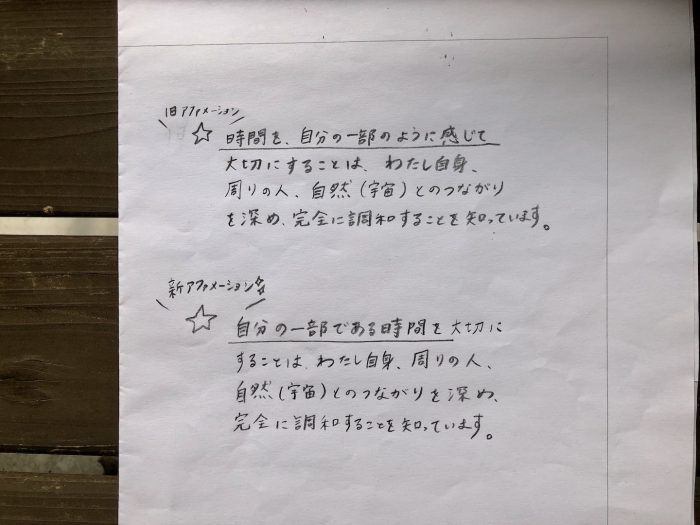 旧アファメーション
☆ 時間を、自分の一部のように感じて
大切にすることは、わたし自身、
周りの人、自然(宇宙)とのつながり
を深め、完全に調和することを知っています。
新アファメーション☆
☆ 自分の一部である時間を大切に
することは、わたし自身、周りの人、
自然(宇宙)とのつながりを深め、
完全に調和することを知っています。